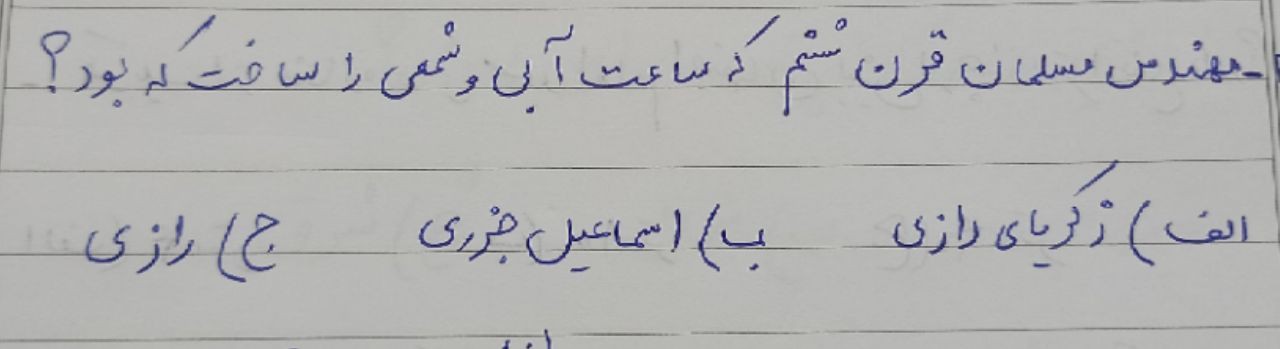 - مهندس مسلمان قرن ششم که ساعت آبی و شمعی را ساخت که بود؟
الف) زکریای رازی ب) اسماعیل جزری ج) رازی